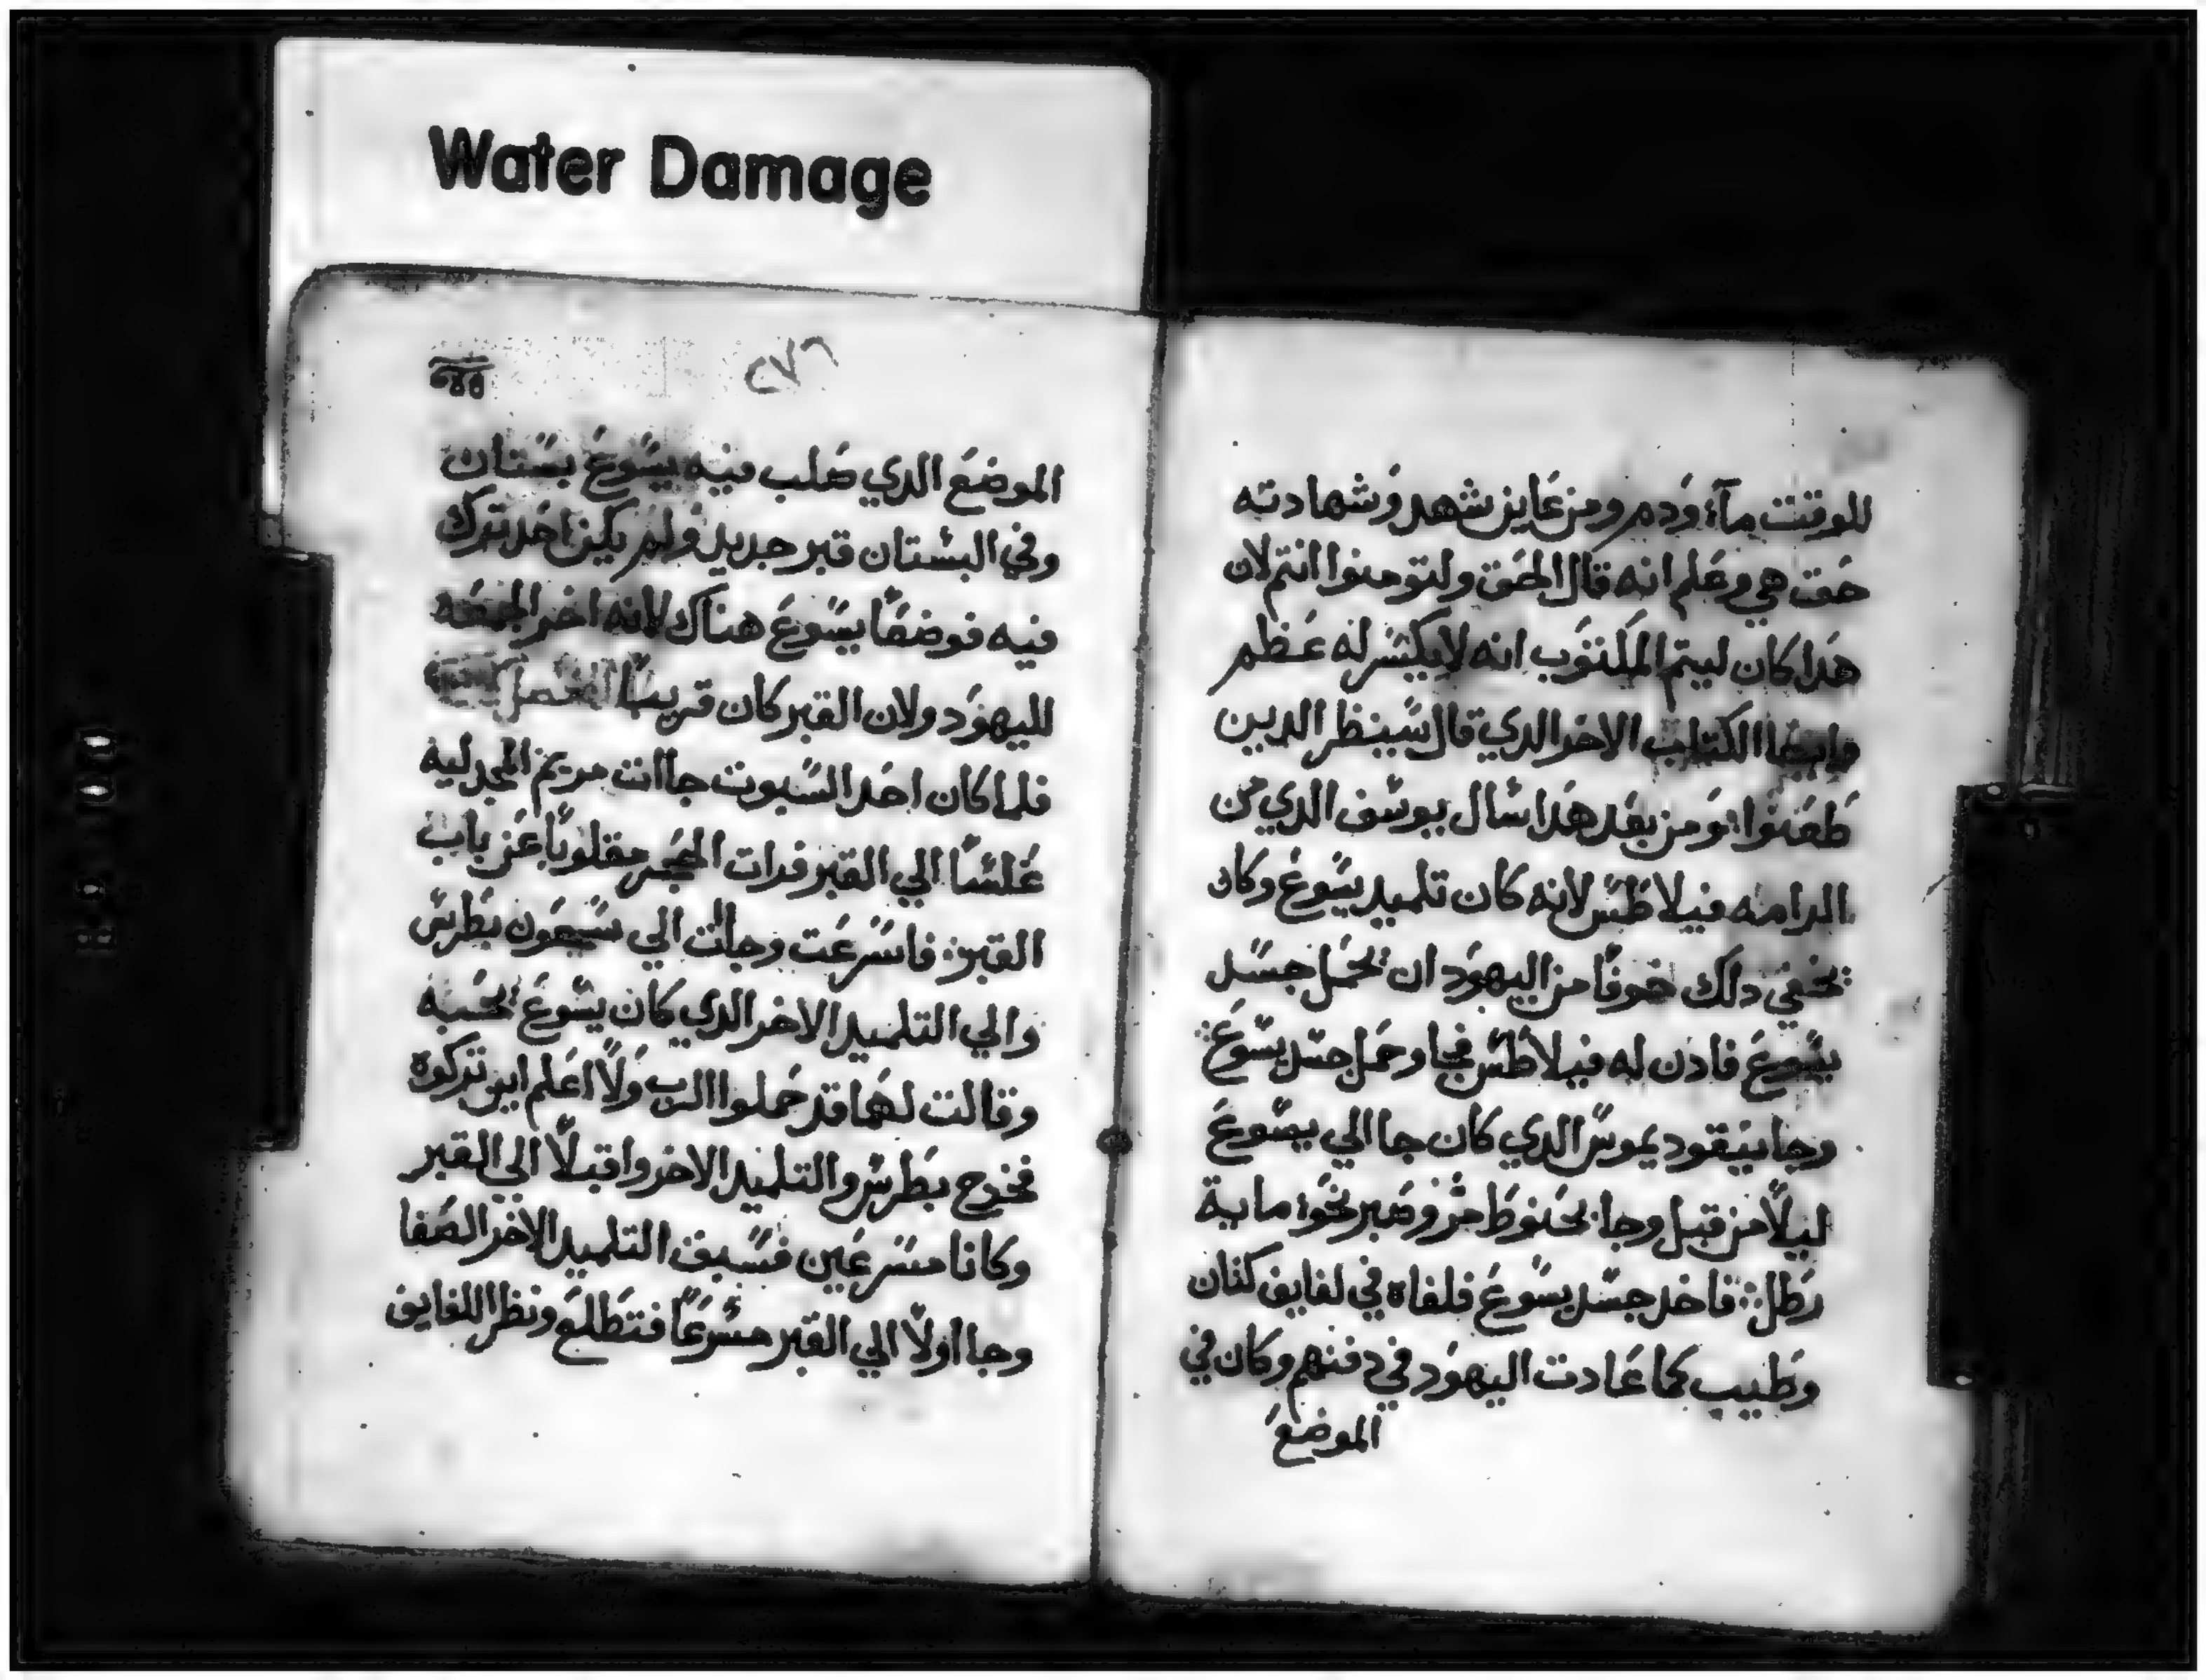 Water Damage
للوقت مآء ودم ومن عاين شهد وشهادته
حق هي وعلم انه قال الحق ولتومنوا انتم لان
هدا كان ليتم المكتوب انه لا يكسر له عظم
وايضا الكتاب الاخر الدي قال سينظر الدين
طعنوا ومن بعد هدا سال يوسف الدي من
الرامه فيلاطس لانه كان تلميد يسوع وكان
يخفي دلك خوفا من اليهود ان يحمل جسد
يسوع فادن له فيلاطس فجا وحمل جسد يسوع
وجا نيقوديموس الدي كان جا الي يسوع
ليلا من قبل وجا بحنوط مر وصبر نحو ماية
رطل فاخد جسد يسوع فلفاه في لفايف كتان
وطيب كما عادت اليهود في دفنهم وكان في
الموضع
٢٧٦
الموضع الدي صلب فيه يسوع بستان
وفي البستان قبر جديد ولم يكن احد ترك
فيه فوضعا يسوع هناك لانه اخر الجمعه
لليهود ولان القبر كان قريبا
فلما كان احد السبوت جاات مريم المجدليه
غلسا الي القبر فرات الحجر مقلوبا عن باب
القبر فاسرعت وجات الي سمعون بطرس
والي التلميد الاخر الدي كان يسوع يحبه
وقالت لهما قد حملوا الرب ولا اعلم اين تركوه
فخرج بطرس والتلميد الاخر واقبلا الي القبر
وكانا مسرعين فسبق التلميد الاخر الصفا
وجا اولا الي القبر مسرعا فتطلع ونظر اللفايف